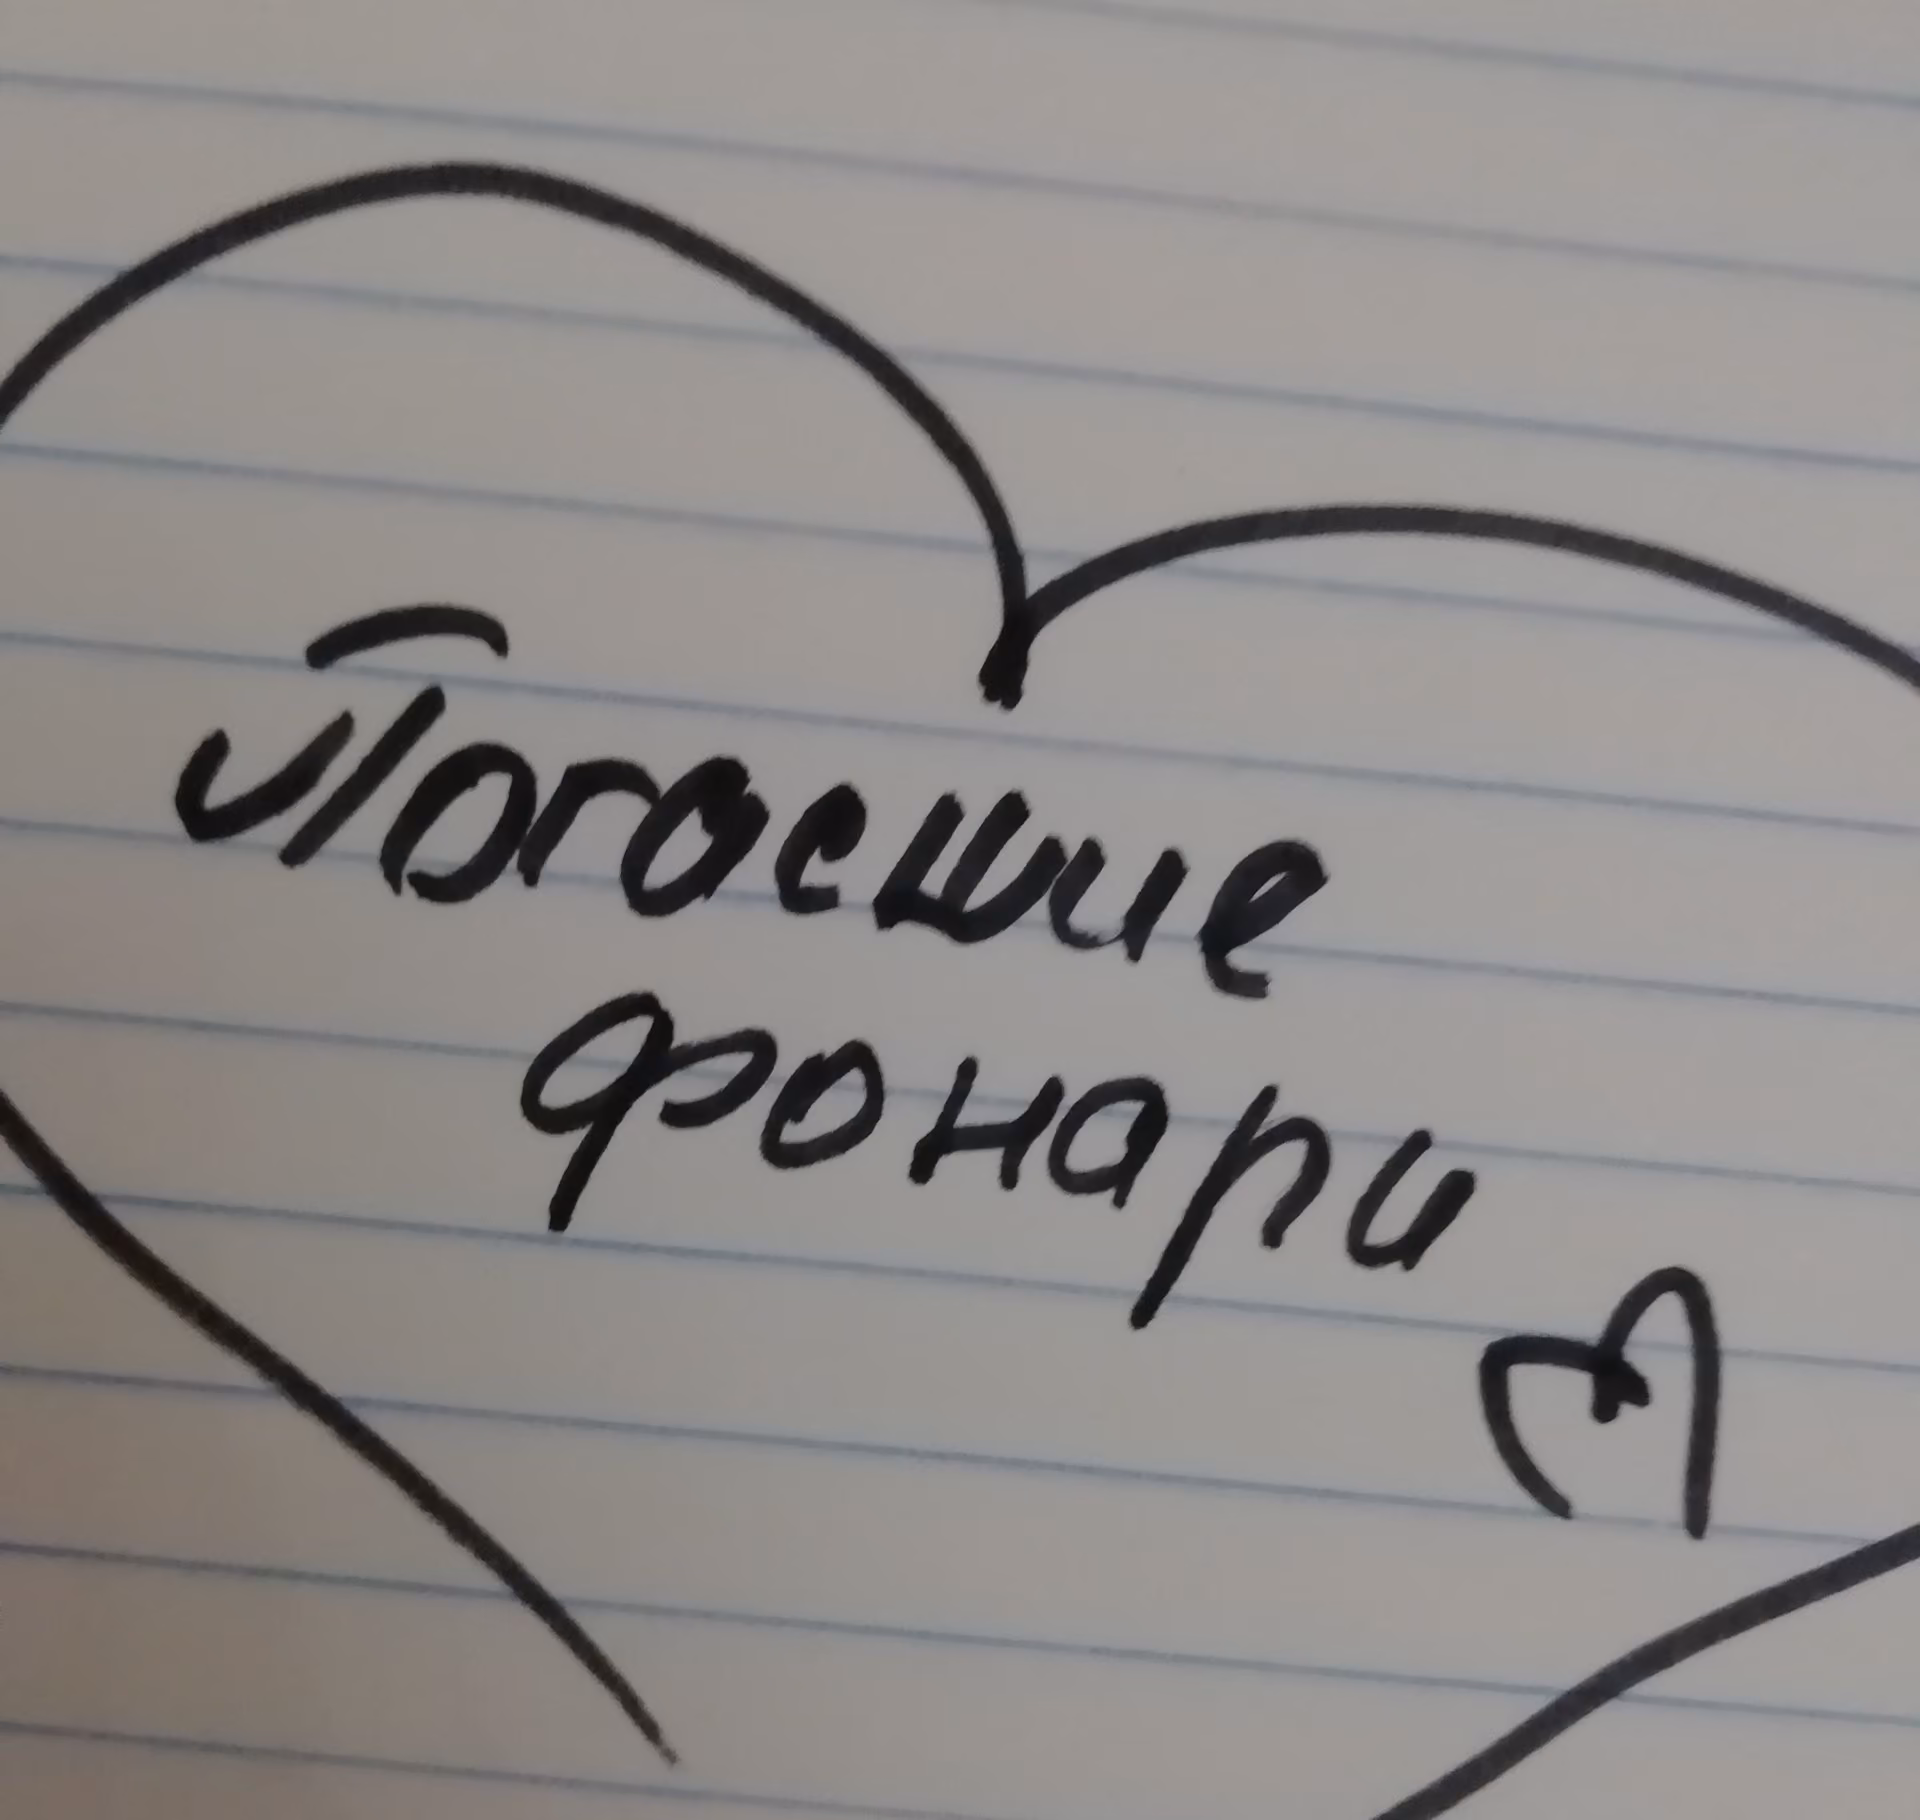 Погасшие
фонари